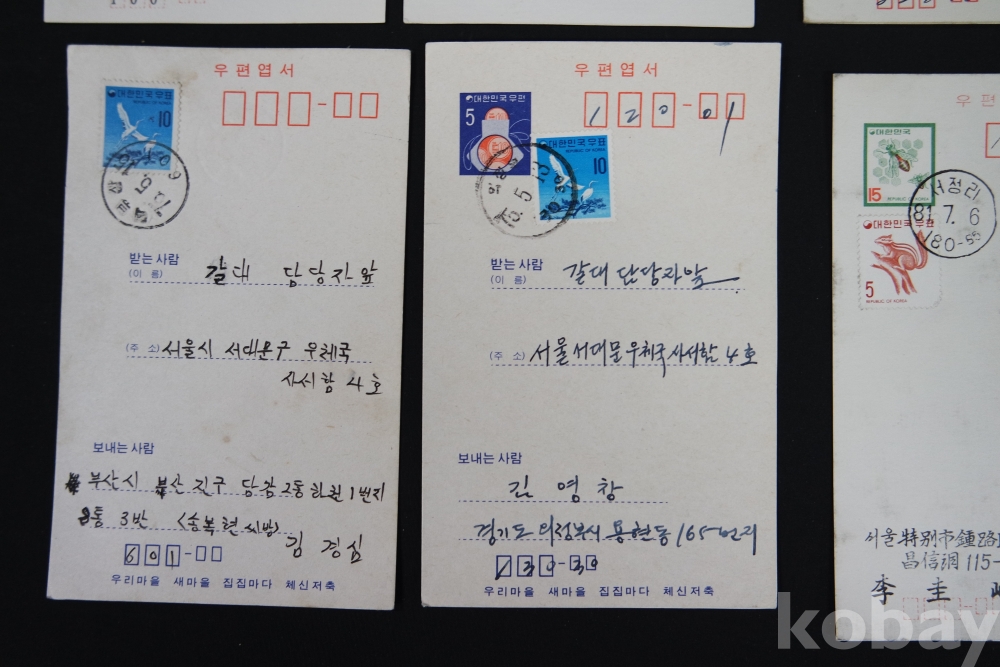 우편엽서
대한민국우표
REPUBLIC OF KOREA
10
75.5
받는 사람
(이 름)
갈대 담당자 앞
(주 소)
서울시 서대문구 우체국
사서함 4호
보내는 사람
부산시 부산진구 당감2동
1번지
3반
김 경심
601
우리마을 새마을 집집마다 체신저축
우편엽서
대한민국우편
5
대한민국우표
10
120-01
75.5.13
받는 사람
(이 름)
갈대 담당자앞
(주 소)
서울서대문우체국사서함 4호
보내는 사람
김 영창
경기도 의정부시 용현동 165번지
130-30
우리마을 새마을 집집마다 체신저축
우편
대한민국
15
REPUBLIC OF KOREA
대한민국우표
5
REPUBLIC OF KOREA
서정리
81.7.6
180-55
서울特別市鍾路
昌信洞 115-
李 圭
kobay